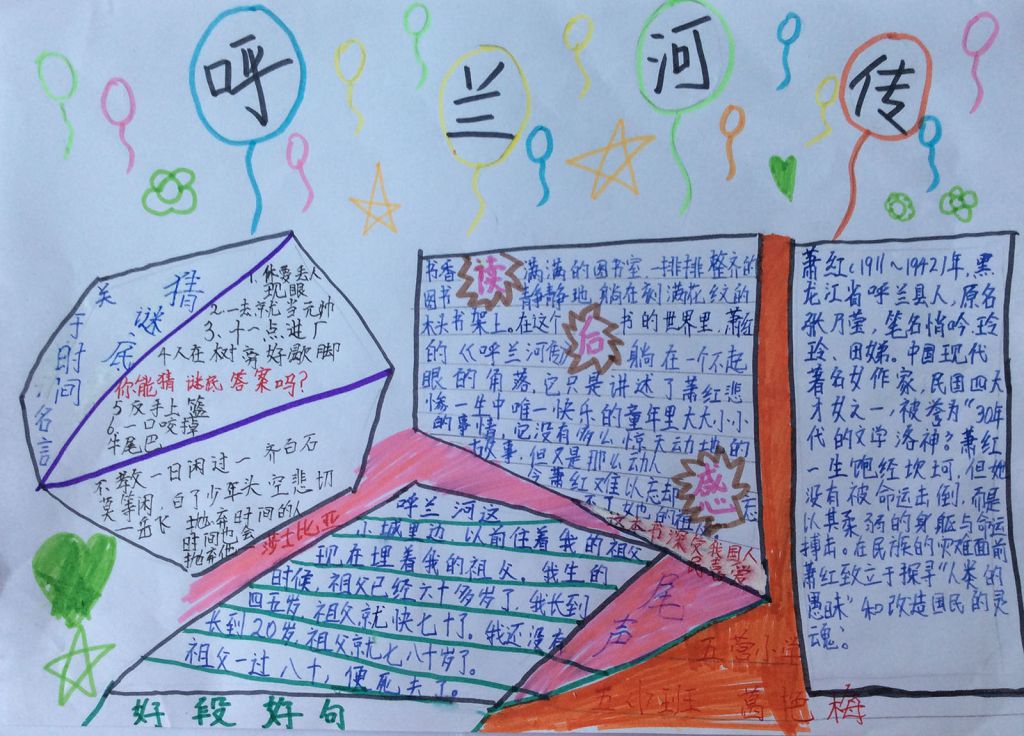 呼兰河传
猜谜底
1.你要丢人
现眼
2.一去就当元帅
3.十一点进厂
4人在树旁好歇脚
你能猜谜底答案吗?
5反手上篮
6.一口咬掉
牛尾巴
关于时间名言
不教一日闲过 齐白石
莫等闲,白了少年头空悲切
岳飞 抛弃时间的人
时间也会
抛弃他 莎士比亚
读后感
书香满满的图书室,一排排整齐的
图书静静地躺在刻满花纹的
木头书架上。在这个书的世界里,萧红
的《呼兰河传》躺在一个不起
眼的角落,它只是讲述了萧红悲
惨一生中唯一快乐的童年里大大小小
的事情,它没有多么惊天动地的
故事,但又是那么动人
令萧红难以忘却
这本书深受我国人
喜爱
呼兰河这
小城里边,以前住着我的祖父
现在埋着我的祖父。我生的
时候,祖父已经六十多岁了,我长到
四五岁,祖父就快七十了。我还没有
长到20岁,祖父就七八十岁了。
祖父一过八十,便死去了。
尾声
好段好句
萧红(1911~1942)年,黑
龙江省呼兰县人,原名
张乃莹,笔名悄吟,玲
玲、田娣。中国现代
著名女作家,民国四大
才女之一,被誉为“30年
代的文学洛神?萧红
一生饱经坎坷,但她
没有被命运击倒,而是
以其柔弱的身躯与命运
搏击。在民族的灾难面前
萧红致立于探寻“人类的
愚昧”和改造国民的灵
魂。
五营小学
班
艳梅